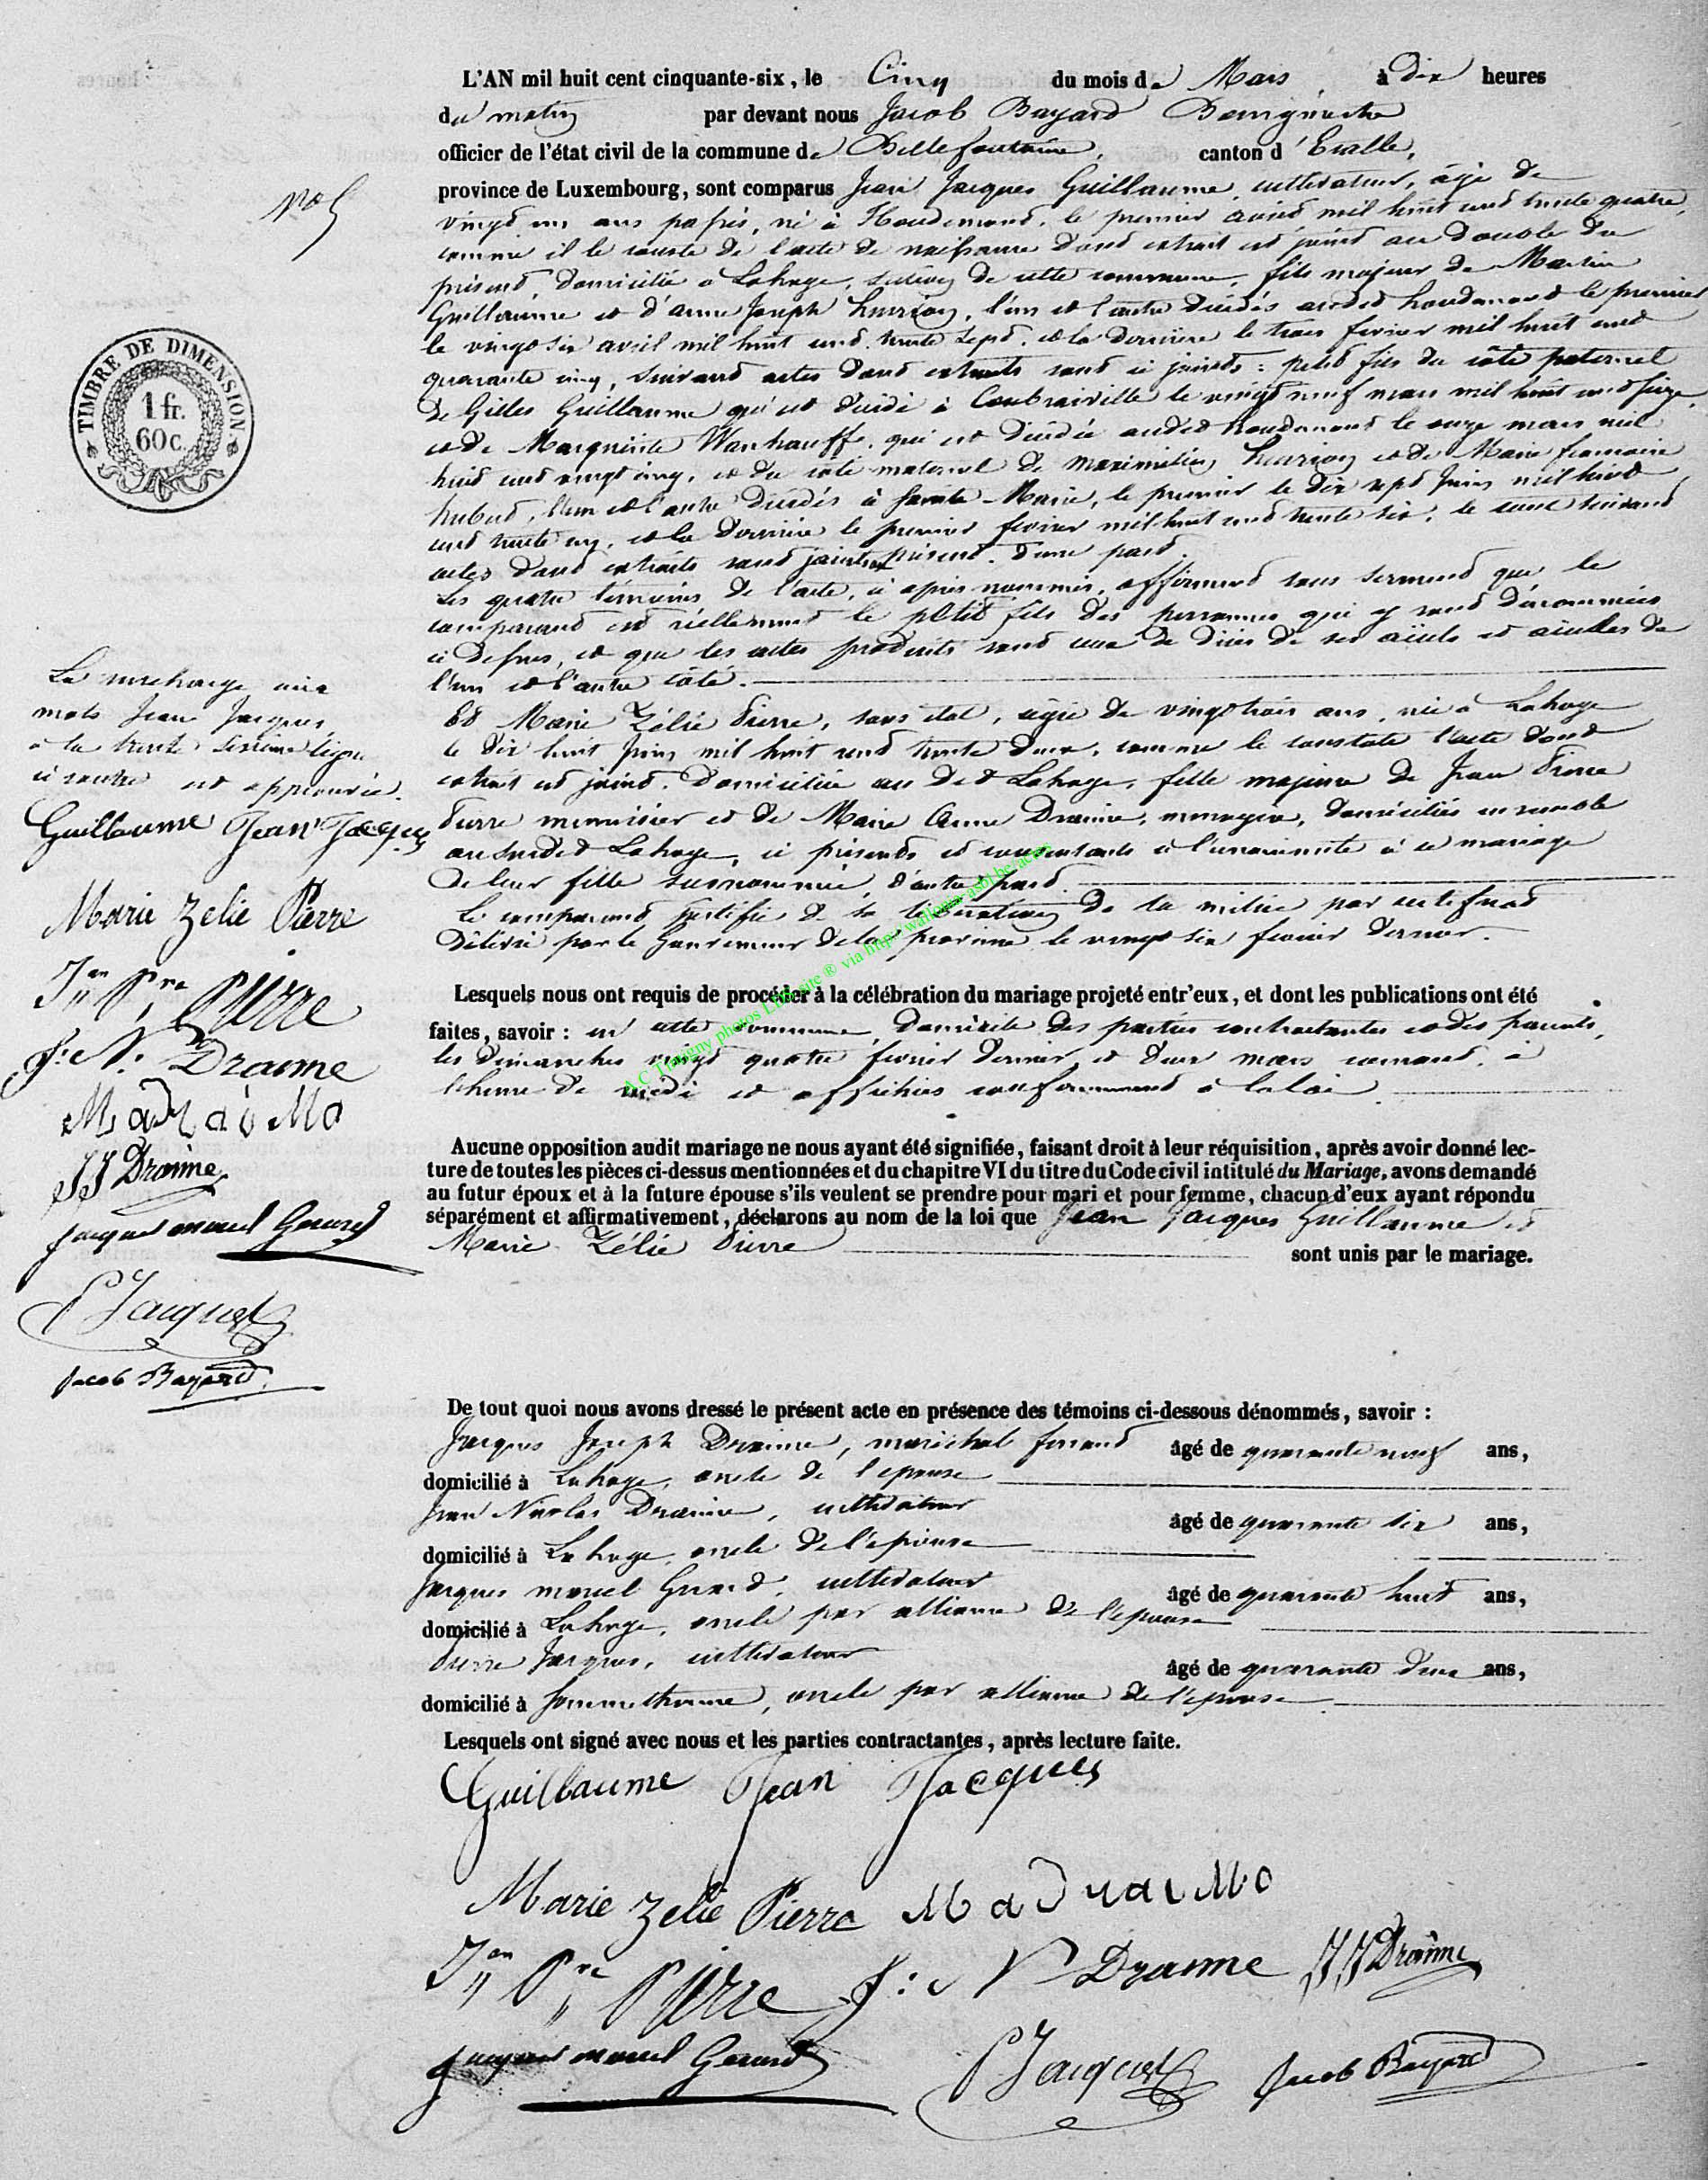 L'AN mil huit cent cinquante-six, le Cinq du mois de Mars à dix heures
du matin par devant nous Jacob Bayard Bourgmestre
officier de l'état civil de la commune de Bellefontaine, canton d'Etalle,
province de Luxembourg, sont comparus Jean Jacques Guillaume, cultivateur, âgé de
vingt un ans passés, né à Houdemont, le premier avril mil huit cent trente quatre,
comme il le conste de l'acte de naissance dont extrait est joint au double du
présent, domicilié à Lahage, section de cette commune, fils majeur de Martin
Guillaume et d'anne Joseph Hurion, l'un et l'autre décédés audit houdemont le premier
le vingt six avril mil huit cent trente sept, et la dernière le trois fevrier mil huit cent
quarante cinq, suivant actes dont extraits sont ci joints : petit fils du côté paternel
de Gilles Guillaume qui est décédé à le vingt neuf mars mil huit cent seize,
et de Marguerite qui est décédée audit houdemont le onze mars mil
huit cent vingt cinq, et du coté maternel de maximilien hurion et de Marie francoise
hubert, l'un et l'autre décédés à Sainte-Marie, le premier le dix sept Juin mil huit
cent trente un, et la dernière le premier fevrier mil huit cent trente six, le tout suivant
actes dont extraits sont joints au présent. d'une part.
Les quatre témoins de l'acte, ci après nommés, affirment sous serment que le
comparant est réellement le petit fils des personnes qui y sont dénommées
ci dessus, et que les actes produits sont ceux de décès de ses aïeuls et aïeulles de
l'un et l'autre côté.
Et Marie Zélie Pierre, sans état, agée de vingt trois ans, née à Lahage
le dix huit Juin mil huit cent trente deux, comme le constate l'acte dont
extrait est joint. Domiciliée au dit Lahage, fille majeure de Jean Pierre
Pierre menuisier et de Marie Anne Draime, menagère, domiciliés ensemble
au susdit Lahage, ci présents et consentants à l'unanimité à ce mariage
de leur fille susnommée, d'autre part.
Le comparant justifie de sa libération de la milice par certificat
délivré par le Gouverneur de la province le vingt six fevrier dernier.
Lesquels nous ont requis de procéder à la célébration du mariage projeté entr'eux, et dont les publications ont été
faites, savoir : en cette commune, domicile des parties contractantes et des parents,
les dimanches vingt quatre fevrier dernier et deux mars courant, à
l'heure de midi et affichées conformément à la loi.
Aucune opposition audit mariage ne nous ayant été signifiée, faisant droit à leur réquisition, après avoir donné lec-
ture de toutes les pièces ci-dessus mentionnées et du chapitre VI du titre du Code civil intitulé du Mariage, avons demandé
au futur époux et à la future épouse s'ils veulent se prendre pour mari et pour femme, chacun d'eux ayant répondu
séparément et affirmativement, déclarons au nom de la loi que Jean Jacques Guillaume et
Marie Zélie Pierre sont unis par le mariage.
De tout quoi nous avons dressé le présent acte en présence des témoins ci-dessous dénommés, savoir :
Jacques Joseph Draime, maréchal ferrant âgé de quarante neuf ans,
domicilié à Lahage, oncle de l'epouse
Jean Nicolas Draime, cultivateur âgé de quarante six ans,
domicilié à Lahage, oncle de l'épouse
Jacques marcel Gerard, cultivateur âgé de quarante huit ans,
domicilié à Lahage, oncle par alliance de l'epouse
Pierre Jacques, cultivateur âgé de quarante deux ans,
domicilié à Sommethonne, oncle par alliance de l'epouse
Lesquels ont signé avec nous et les parties contractantes, après lecture faite.
Guillaume Jean Jacques
Marie Zelie Pierre M a DraiMo
Jan Pre Pierre J: N Draime JJ Draime
Jacques marcel Gerard P Jacquet Jacob Bayard
N° 5
TIMBRE DE DIMENSION
1 fr.
60 c.
La surcharge aux
mots Jean Jacques,
à la trente sixième ligne
ci contre est approuvée.
Guillaume Jean Jacques
Marie Zelie Pierre
Jn Pre Pierre
J: N: Draime
M a Drai Mo
JJ Draime
Jacques marcel Gerard
P Jacquet
Jacob Bayard